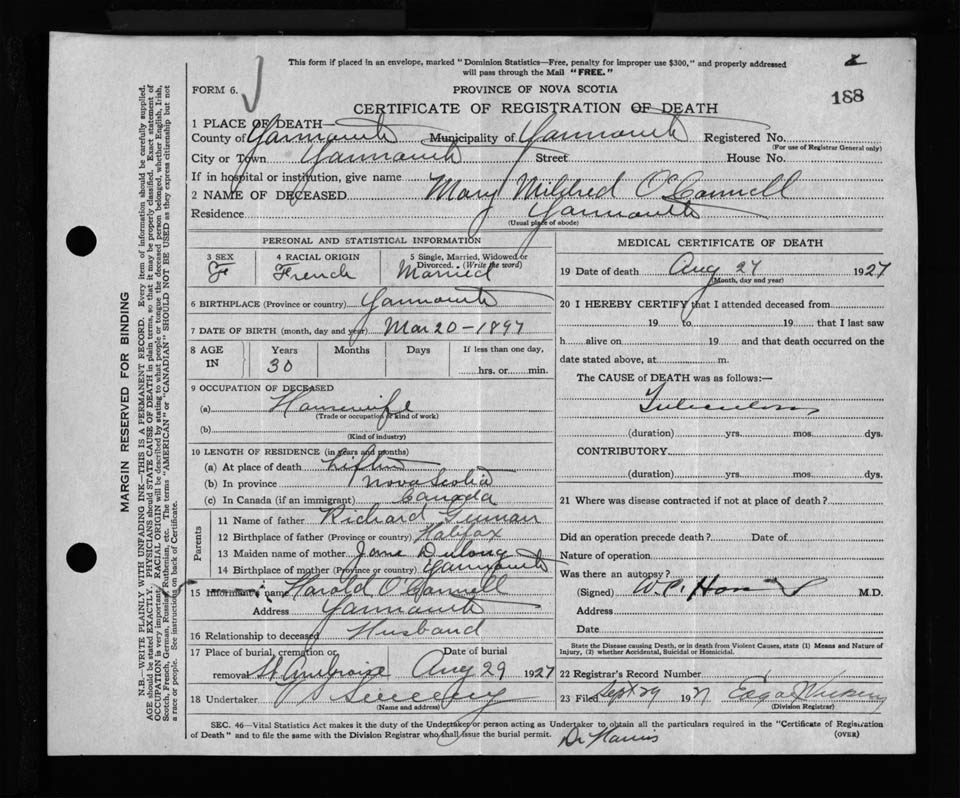 This form if placed in an envelope, marked "Dominion Statistics—Free, penalty for improper use $300," and properly addressed
will pass through the Mail "FREE."
FORM 6.
PROVINCE OF NOVA SCOTIA
188
CERTIFICATE OF REGISTRATION OF DEATH
1 PLACE OF DEATH—
County of Yarmouth Municipality of Yarmouth Registered No.
(For use of Registrar General only)
City or Town Yarmouth Street House No.
If in hospital or institution, give name
2 NAME OF DECEASED Mary Mildred O'Connell
Residence Yarmouth
(Usual place of abode)
PERSONAL AND STATISTICAL INFORMATION
3 SEX 4 RACIAL ORIGIN 5 Single, Married, Widowed or
Divorced. (Write the word)
F French Married
6 BIRTHPLACE (Province or country) Yarmouth
7 DATE OF BIRTH (month, day and year) Mar 20-1897
8 AGE Years Months Days If less than one day,
IN 30 hrs. or min.
9 OCCUPATION OF DECEASED
(a) Housewife
(Trade or occupation or kind of work)
(b)
(Kind of industry)
10 LENGTH OF RESIDENCE (in years and months)
(a) At place of death Lifetime
(b) In province Nova Scotia
(c) In Canada (if an immigrant) Canada
Parents
11 Name of father Richard
12 Birthplace of father (Province or country) Halifax
13 Maiden name of mother Jane Dulong
14 Birthplace of mother (Province or country) Yarmouth
15 Informant's name Harold O'Connell
Address Yarmouth
16 Relationship to deceased Husband
17 Place of burial, cremation or Date of burial
removal St Ambroise Aug 29 1927
18 Undertaker Sweeny
(Name and address)
MEDICAL CERTIFICATE OF DEATH
19 Date of death Aug 27 1927
(Month, day and year)
20 I HEREBY CERTIFY that I attended deceased from
19 to 19 that I last saw
h alive on 19 and that death occurred on the
date stated above, at m.
The CAUSE of DEATH was as follows:—
Tuberculosis
(duration) yrs. mos. dys.
CONTRIBUTORY
(duration) yrs. mos. dys.
21 Where was disease contracted if not at place of death?
Did an operation precede death? Date of
Nature of operation
Was there an autopsy?
(Signed) W.C. M.D.
Address
Date
State the Disease causing Death, or in death from Violent Causes, state (1) Means and Nature of
Injury, (2) whether Accidental, Suicidal or Homicidal.
22 Registrar's Record Number
23 Filed Sept 29 1927 Edgar
(Division Registrar)
SEC. 46—Vital Statistics Act makes it the duty of the Undertaker or person acting as Undertaker to obtain all the particulars required in the "Certificate of Registration
of Death" and to file the same with the Division Registrar who shall issue the burial permit.
(OVER)
Dr Harris
MARGIN RESERVED FOR BINDING
N.B.—WRITE PLAINLY WITH UNFADING INK—THIS IS A PERMANENT RECORD. Every item of information should be carefully supplied.
AGE should be stated EXACTLY. PHYSICIANS should STATE CAUSE OF DEATH in plain terms, so that it may be properly classified. Exact statement of
OCCUPATION is very important. RACIAL ORIGIN will be described by stating to what people or tongue the deceased person belonged, whether English, Irish,
Scotch, French, German, Russian, Ruthenian, etc. The terms "AMERICAN" or "CANADIAN" SHOULD NOT BE USED as they express citizenship but not
a race or people. See instructions on back of Certificate.